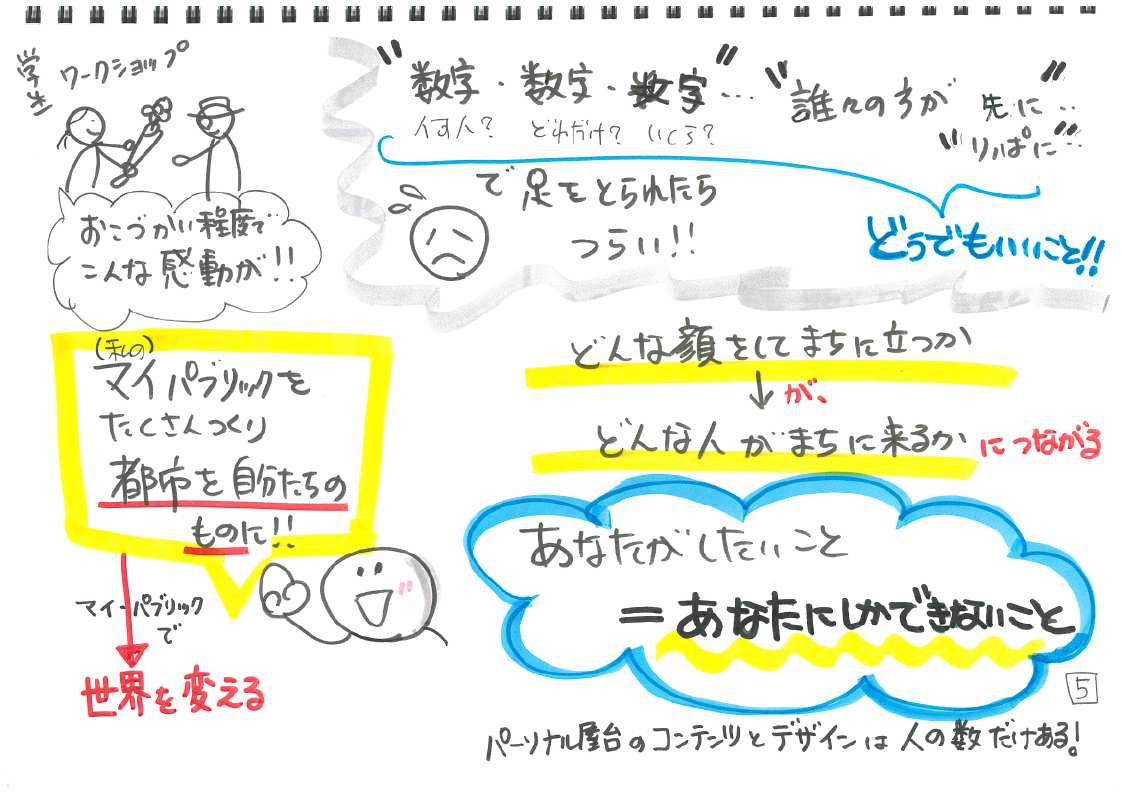 学生
ワークショップ
おこづかい程度で
こんな感動が!!
"数字・数字・数字"…
何人? どれだけ? いくら?
"誰々の方が 先に…"
"りっぱに…"
で足をとられたら
つらい!!
どうでもいいこと!!
(私の)
マイパブリックを
たくさんつくり
都市を自分たちの
ものに!!
マイ・パブリックで
世界を変える
どんな顔をしてまちに立つか
が、
どんな人がまちに来るかにつながる
あなたがしたいこと
=あなたにしかできないこと
5
パーソナル屋台のコンテンツとデザインは人の数だけある!